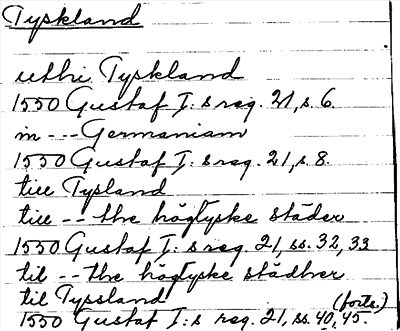 Tyskland
uthi Tyskland
1550 Gustaf I:s reg. 21, s. 6.
in --- Germaniam
1550 Gustaf I:s reg. 21, s. 8.
till Tysland
till -- the högtyske städer
1550 Gustaf I:s reg. 21, ss. 32, 33
til -- the högtyske städher
til Tyssland (forts.)
1550 Gustaf I:s reg. 21, ss. 40, 45.